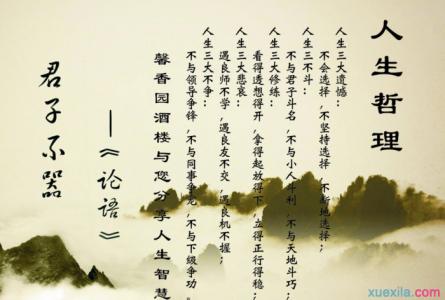 人生哲理
人生三大遗憾:
不会选择,不坚持选择,不断地选择;
人生三不斗:
不与君子斗名,不与小人斗利,不与天地斗巧;
人生三大修练:
看得透想得开,拿得起放得下,立得正行得稳;
人生三大悲哀:
遇良师不学,遇良友不交,遇良机不握;
人生三大不争:
不与领导争锋,不与同事争宠,不与下级争功。
馨香园酒楼与您分享人生智慧
君子不器
—《论语》
xuexila.com